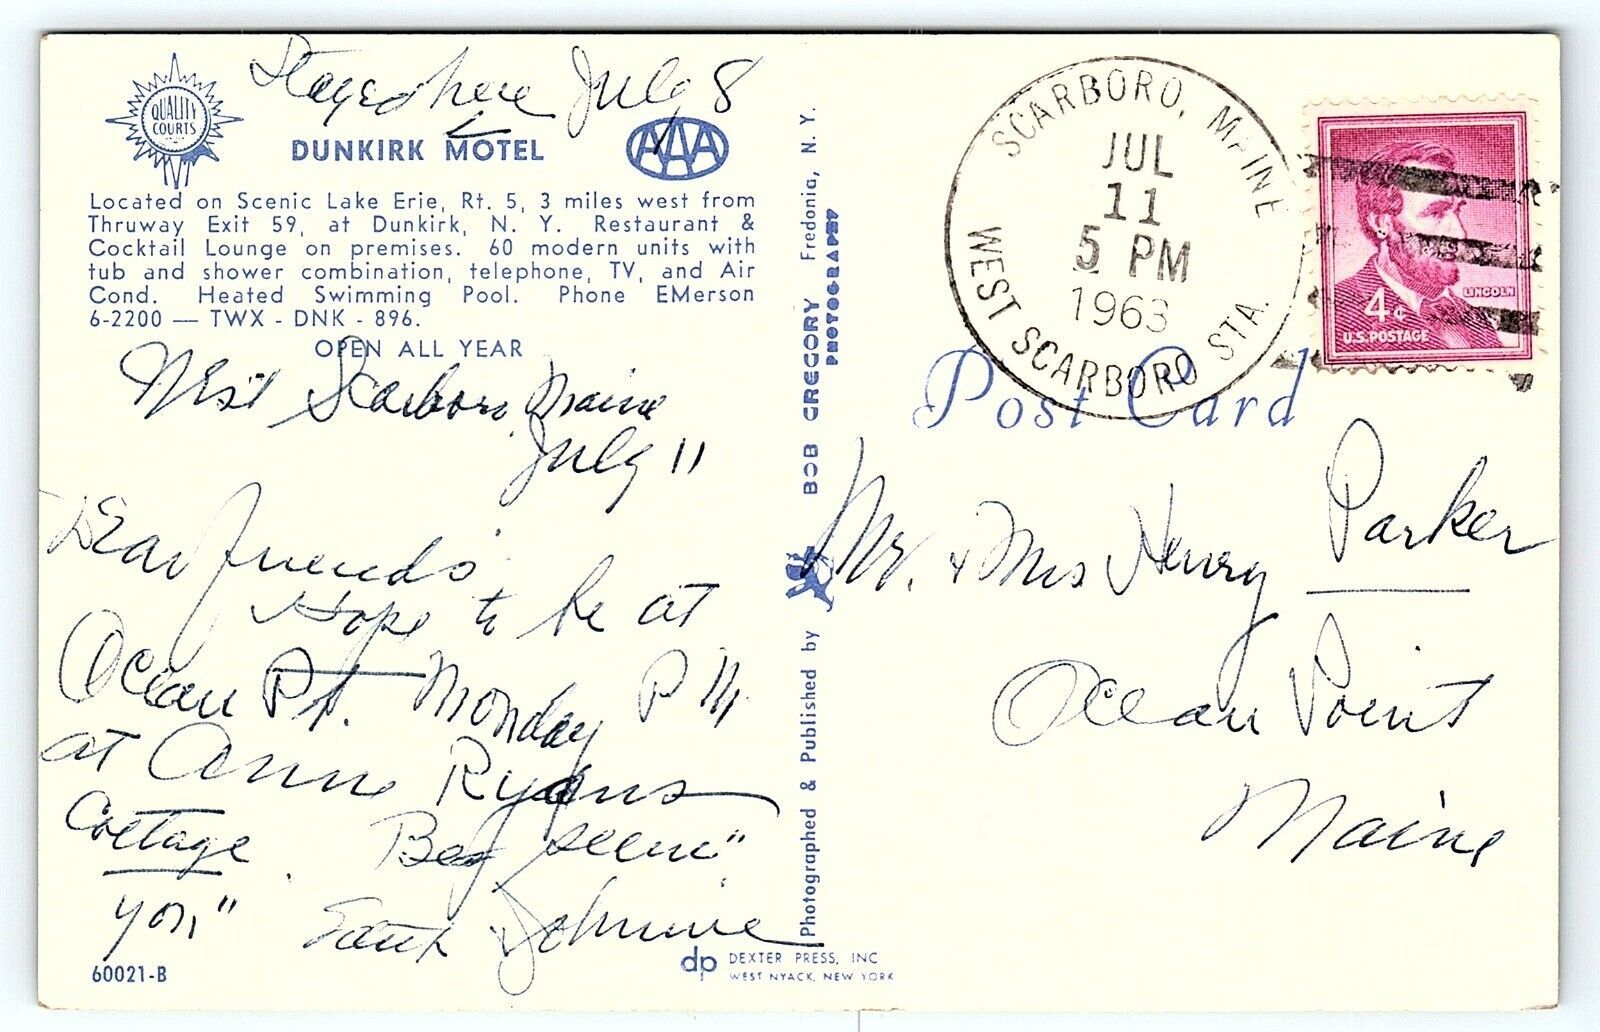 Stayed here July 8
QUALITY
COURTS
DUNKIRK MOTEL
AAA
Located on Scenic Lake Erie, Rt. 5, 3 miles west from
Thruway Exit 59, at Dunkirk, N. Y. Restaurant &
Cocktail Lounge on premises. 60 modern units with
tub and shower combination, telephone, TV, and Air
Cond. Heated Swimming Pool. Phone EMerson
6-2200 — TWX - DNK - 896.
OPEN ALL YEAR
West Scarboro, Maine
July 11
Dear friends
Hope to be at
Ocean Pt. Monday P M.
at Anne Ryans
Cottage. Beg seein"
you"
Johnnie
60021-B
Photographed & Published by
BOB GREGORY Fredonia, N. Y.
PHOTOGRAPHY
dp DEXTER PRESS, INC
WEST NYACK, NEW YORK
SCARBORO, MAINE
JUL
11
5 PM
1963
WEST SCARBORO STA.
LINCOLN
4¢
U.S. POSTAGE
Post Card
Mr. + Mrs Henry Parker
Ocean Point
Maine